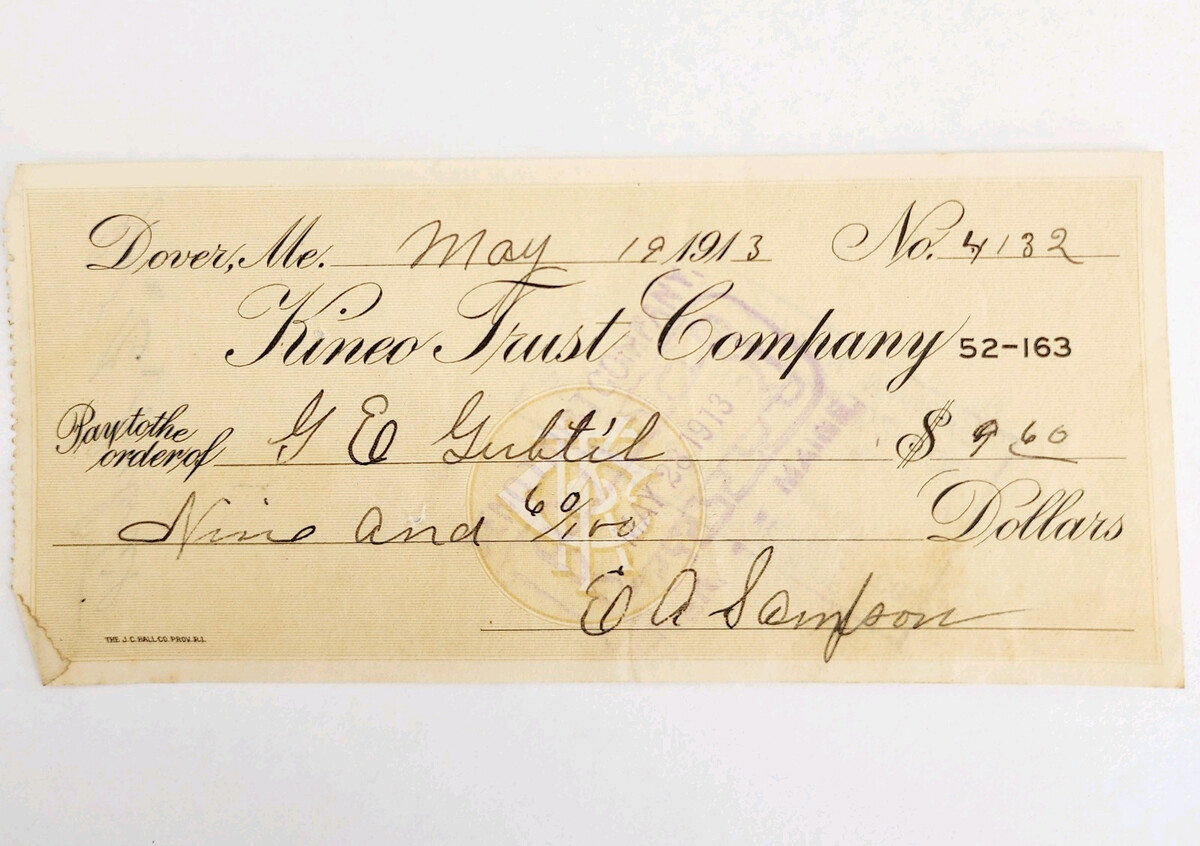 Dover, Me. May 19 1913 No. 4132
Kineo Trust Company 52-163
Pay to the order of G E Gubtil $ 9 60
Nine and 60/100 Dollars
E A Sampson
THE J.C. HALL CO. PROV. R.I.
COMPANY,
MAY 23 1913
MAINE